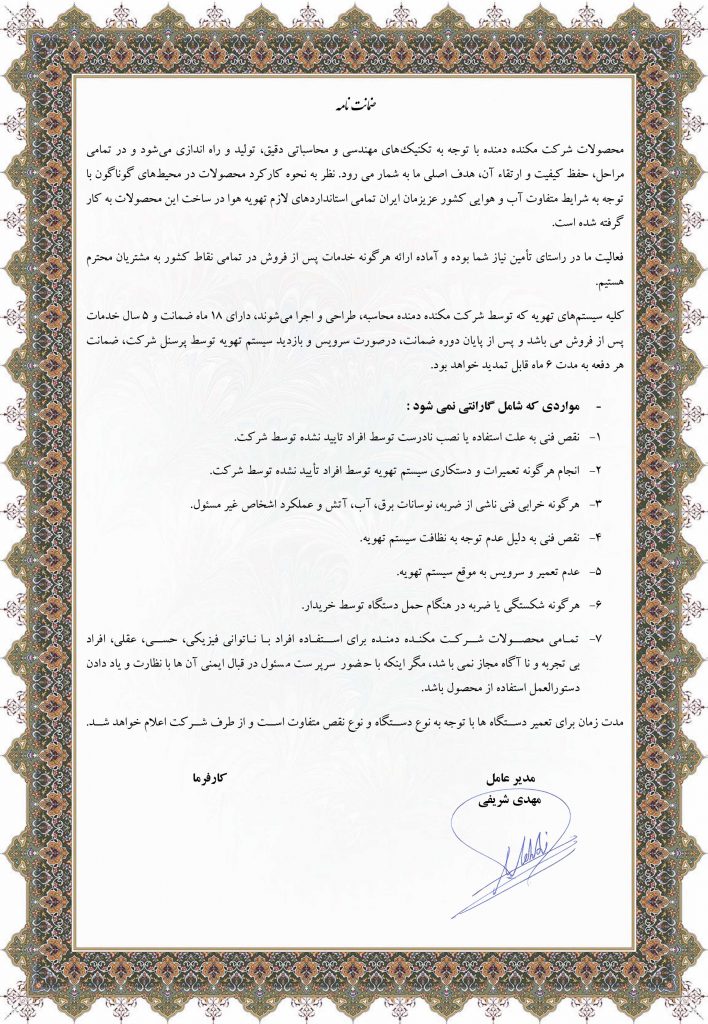 ضمانت نامه
محصولات شرکت مکنده دمنده با توجه به تکنیک‌های مهندسی و محاسباتی دقیق، تولید و راه اندازی می‌شود و در تمامی
مراحل، حفظ کیفیت و ارتقاء آن، هدف اصلی ما به شمار می رود. نظر به نحوه کارکرد محصولات در محیط‌های گوناگون با
توجه به شرایط متفاوت آب و هوایی کشور عزیزمان ایران تمامی استانداردهای لازم تهویه هوا در ساخت این محصولات به کار
گرفته شده است.
فعالیت ما در راستای تأمین نیاز شما بوده و آماده ارائه هرگونه خدمات پس از فروش در تمامی نقاط کشور به مشتریان محترم
هستیم.
کلیه سیستم‌های تهویه که توسط شرکت مکنده دمنده محاسبه، طراحی و اجرا می‌شوند، دارای ۱۸ ماه ضمانت و ۵ سال خدمات
پس از فروش می باشد و پس از پایان دوره ضمانت، درصورت سرویس و بازدید سیستم تهویه توسط پرسنل شرکت، ضمانت
هر دفعه به مدت ۶ ماه قابل تمدید خواهد بود.
- مواردی که شامل گارانتی نمی شود :
۱- نقص فنی به علت استفاده یا نصب نادرست توسط افراد تایید نشده توسط شرکت.
۲- انجام هرگونه تعمیرات و دستکاری سیستم تهویه توسط افراد تأیید نشده توسط شرکت.
۳- هرگونه خرابی فنی ناشی از ضربه، نوسانات برق، آب، آتش و عملکرد اشخاص غیر مسئول.
۴- نقص فنی به دلیل عدم توجه به نظافت سیستم تهویه.
۵- عدم تعمیر و سرویس به موقع سیستم تهویه.
۶- هرگونه شکستگی یا ضربه در هنگام حمل دستگاه توسط خریدار.
۷- تمامی محصولات شرکت مکنده دمنده برای استفاده افراد با ناتوانی فیزیکی، حسی، عقلی، افراد
بی تجربه و نا آگاه مجاز نمی باشد، مگر اینکه با حضور سرپرست مسئول در قبال ایمنی آن ها با نظارت و یاد دادن
دستورالعمل استفاده از محصول باشد.
مدت زمان برای تعمیر دستگاه ها با توجه به نوع دستگاه و نوع نقص متفاوت است و از طرف شرکت اعلام خواهد شد.
مدیر عامل
کارفرما
مهدی شریفی